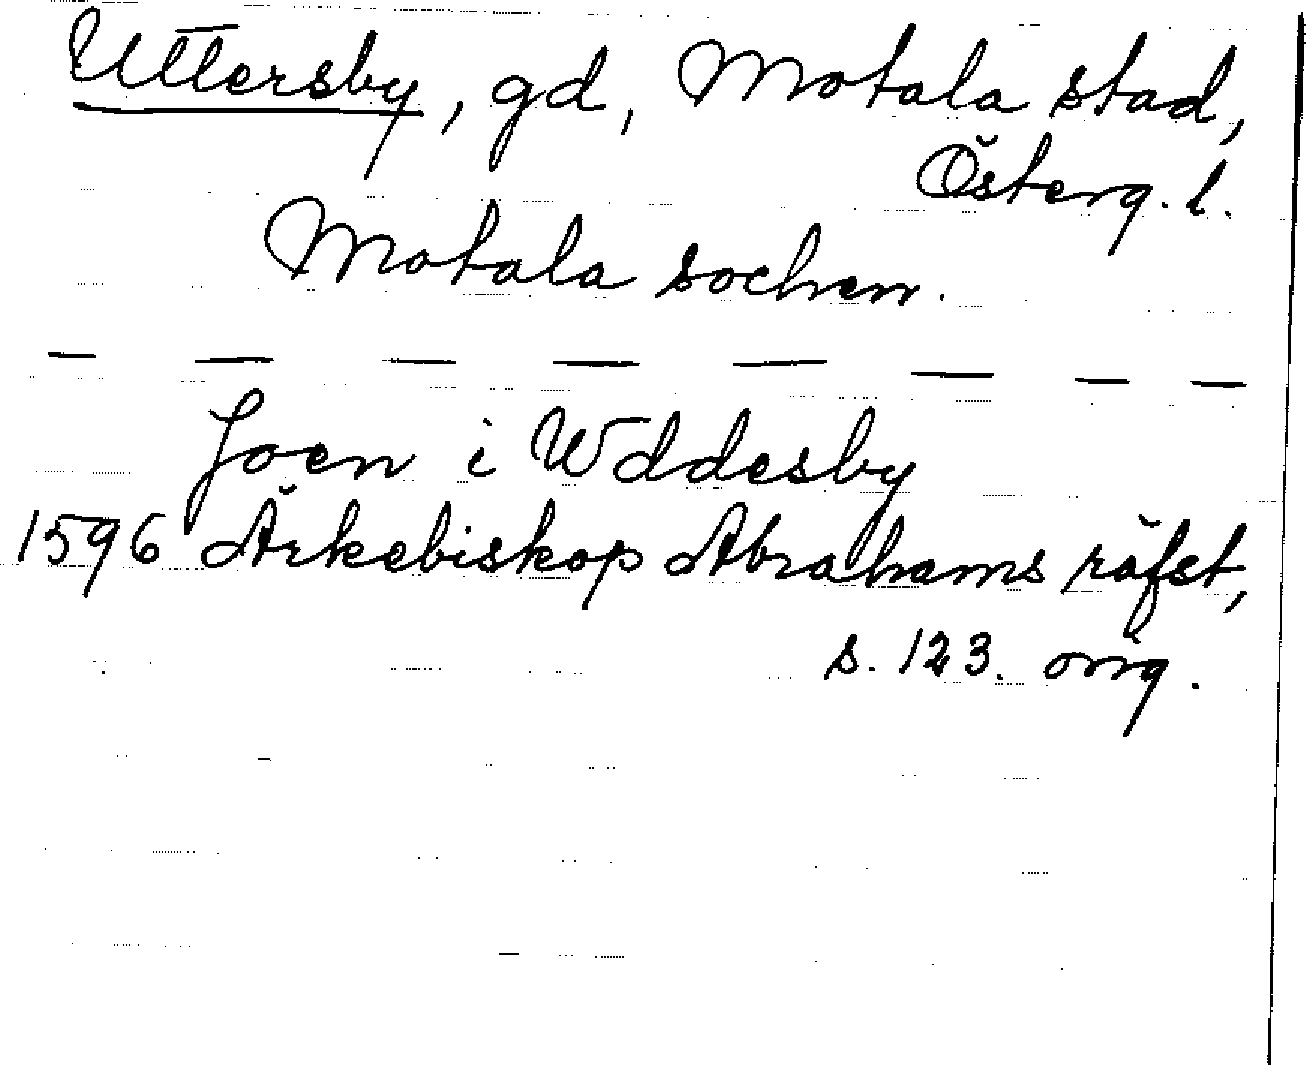 Uttersby, gd, Motala stad,
Österg. l.
Motala sochen.
Joen i Wddesby
1596 Ärkebiskop Abrahams räfst,
s. 123. orig.